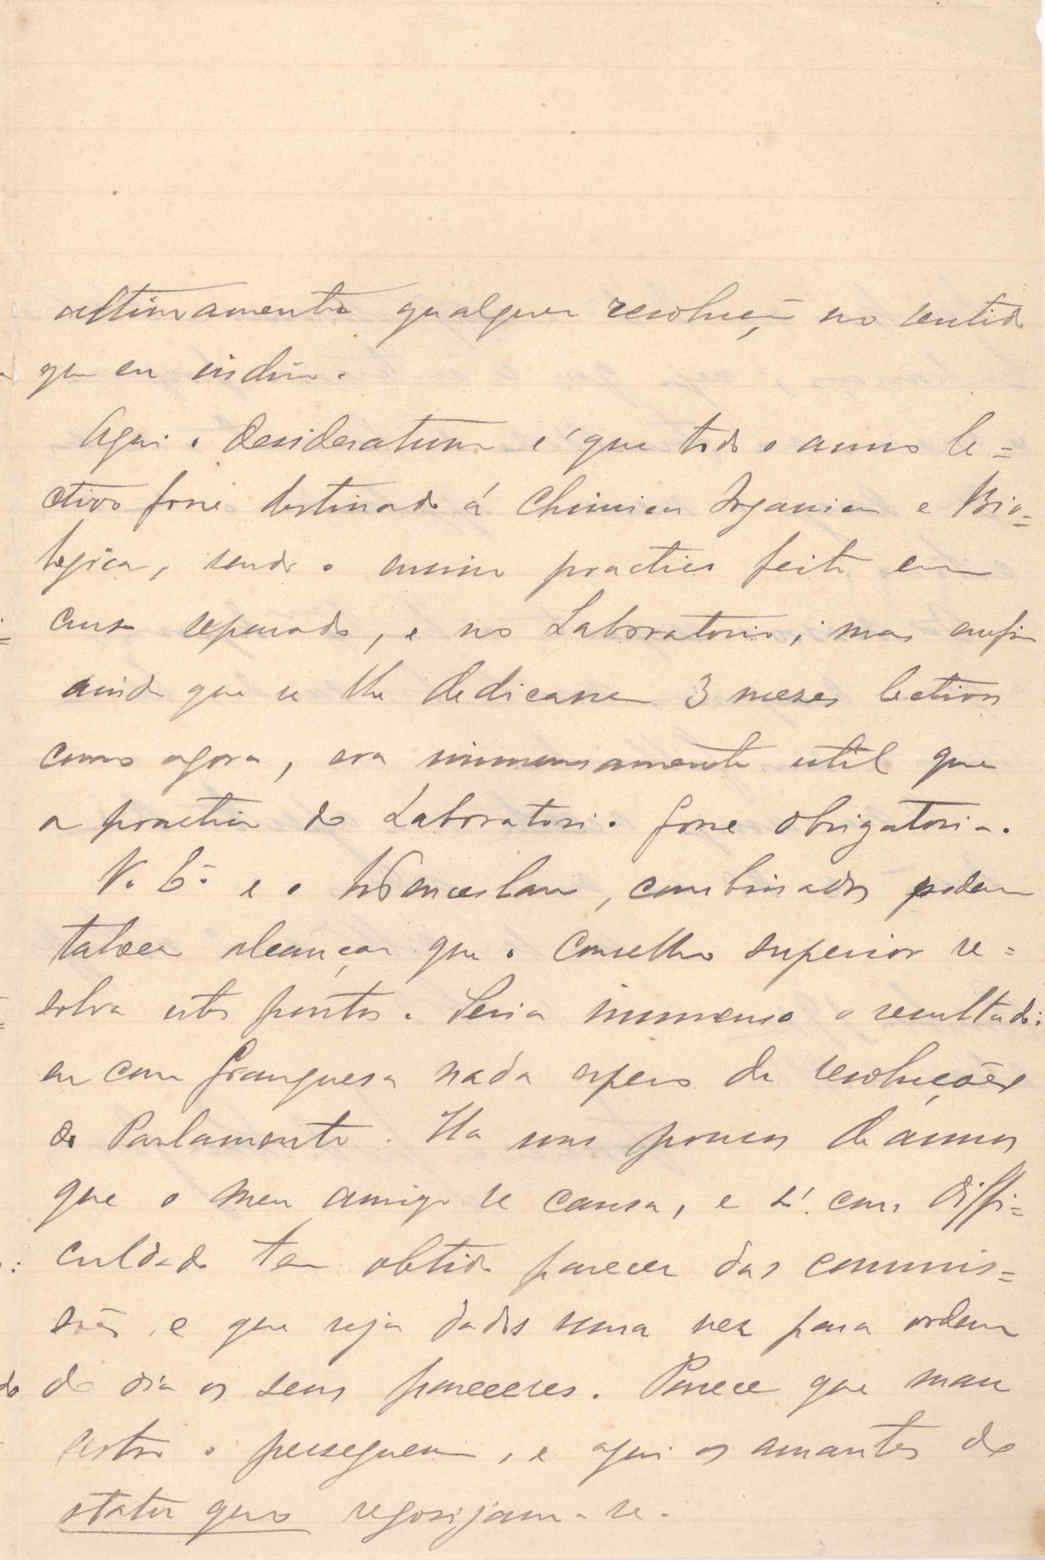 ultimamente qualquer resolução no sentido
que eu indico.
Aqui o desideratum é que todo o anno le=
ctivo fosse destinado á Chimica Organica e Bio=
logica, sendo o ensino practico feito em
curso separado, e no Laboratorio; mas enfim
ainda que se lhe dedicassem 3 mezes lectivos
como agora, era immensamente util que
a practica do Laboratorio fosse obrigatoria.
V. Ex.ª e o Wenceslau, combinados podem
talvez alcançar que o Conselho superior re=
solva estes pontos. Seria immenso o resultado:
eu com franqueza nada espero de resoluções
do Parlamento. Ha uns poucos de annos
que o meu amigo se cansa, e só com diffi=
culdade tem obtido parecer das commis=
sões, e que seja dados uma vez para ordem
do dia os seus pareceres. Parece que mau
astro o perseguem, e aqui os amantes do
statu quo regosijam-se.